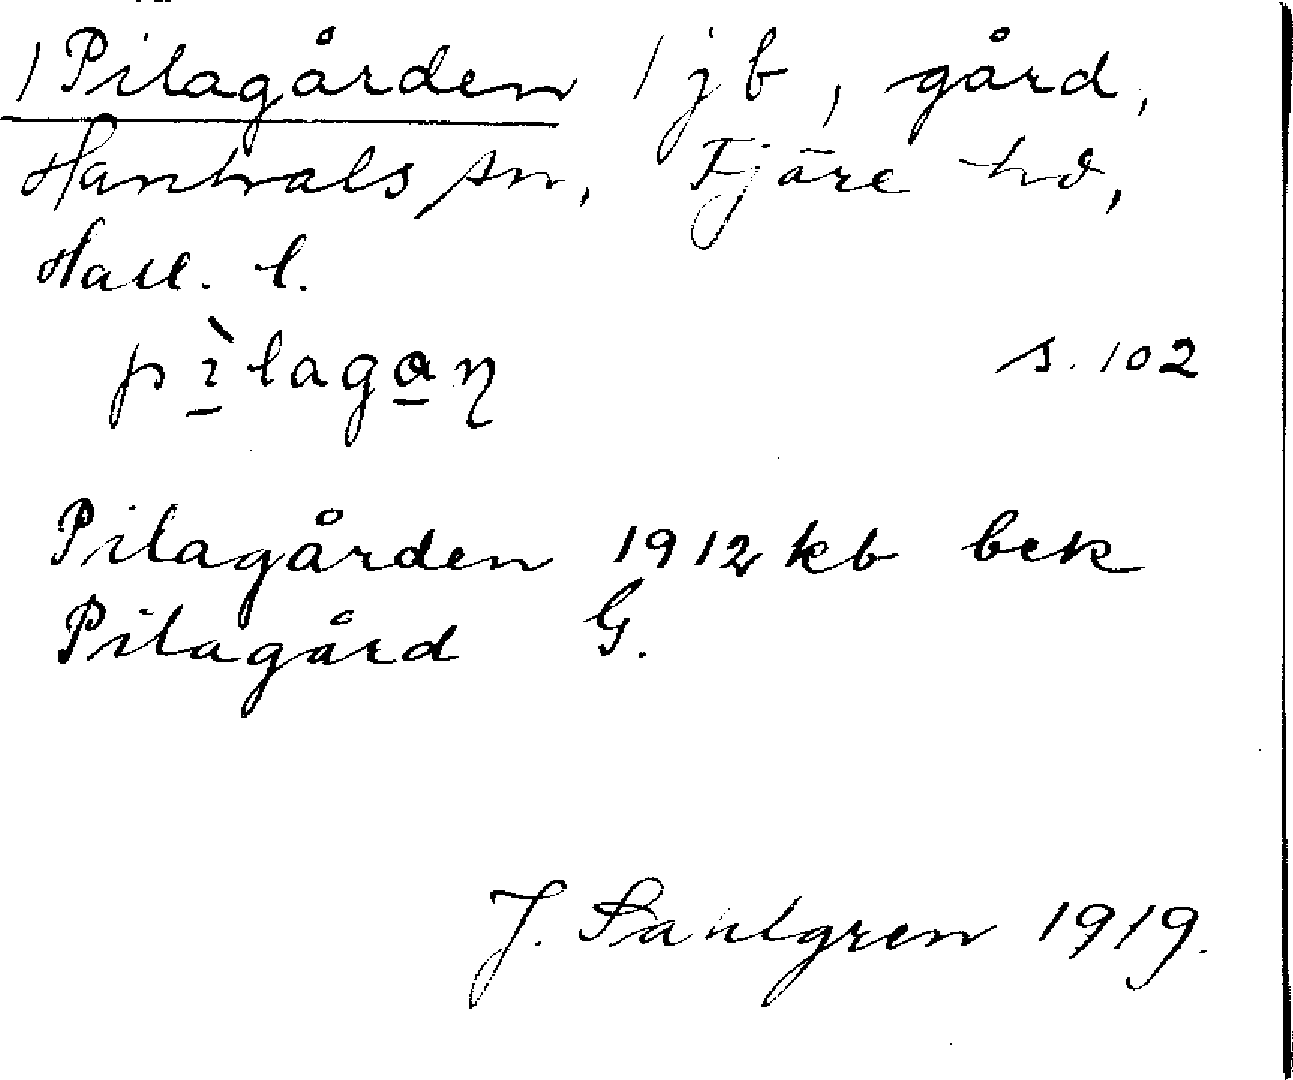 1 Pilagården 1 jb, gård,
Hanhals sn, Fjäre hd,
Hall. l.
pìlagaɳ s. 102
Pilagården 1912 kb bek
Pilagård G.
J. Sahlgren 1919.